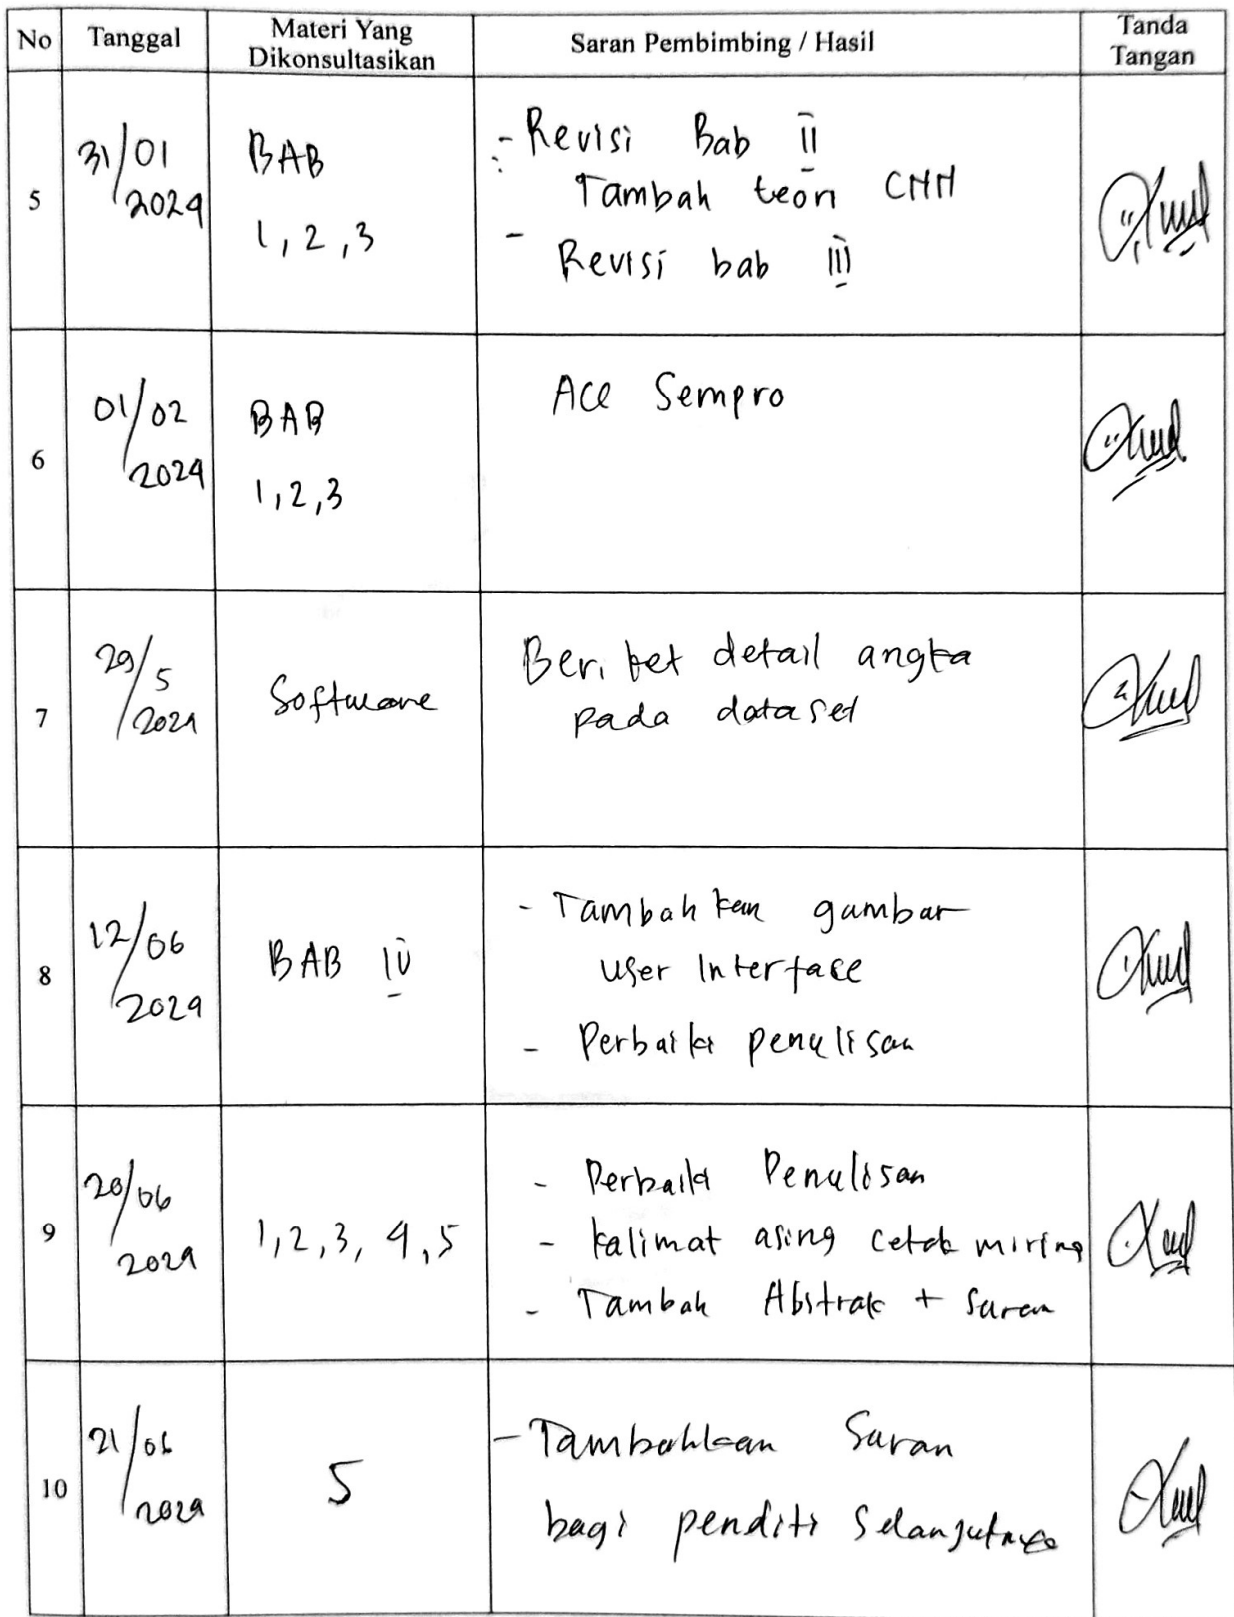 No Tanggal Materi Yang Dikonsultasikan Saran Pembimbing / Hasil Tanda Tangan
5
31/01
2024
BAB
1, 2, 3
- Revisi Bab II
Tambah teori CNN
- Revisi bab III
6
01/02
2024
BAB
1, 2, 3
Acc Sempro
7
29/5
2024
Software
Beri ket detail angka
pada dataset
8
12/06
2024
BAB IV
- Tambahkan gambar
User Interface
- Perbaiki penulisan
9
20/06
2024
1, 2, 3, 4, 5
- Perbaiki Penulisan
- kalimat asing cetak miring
- Tambah Abstrak + Saran
10
21/06
2024
5
- Tambahkan Saran
bagi peneliti Selanjutnya